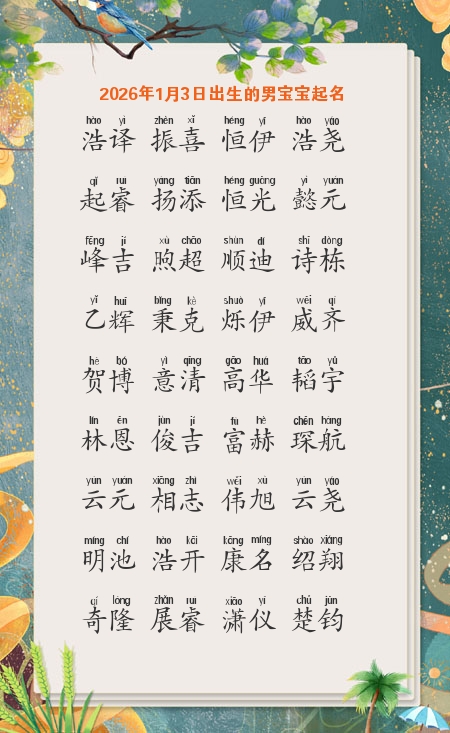 2026年1月3日出生的男宝宝起名
hào yì zhèn xǐ héng yī hào yáo
浩译 振喜 恒伊 浩尧
qǐ ruì yáng tiān héng guāng yì yuán
起睿 扬添 恒光 懿元
fēng jí xù chāo shùn dí shī dòng
峰吉 煦超 顺迪 诗栋
yǐ huī bǐng kè shuò yī wēi qí
乙辉 秉克 烁伊 威齐
hè bó yì qīng gāo huá tāo yǔ
贺博 意清 高华 韬宇
lín ēn jùn jí fù hè chēn háng
林恩 俊吉 富赫 琛航
yún yuán xiāng zhì wěi xù yún yáo
云元 相志 伟旭 云尧
míng chí hào kāi kāng míng shào xiáng
明池 浩开 康名 绍翔
qí lóng zhǎn ruì xiāo yí chǔ jūn
奇隆 展睿 潇仪 楚钧